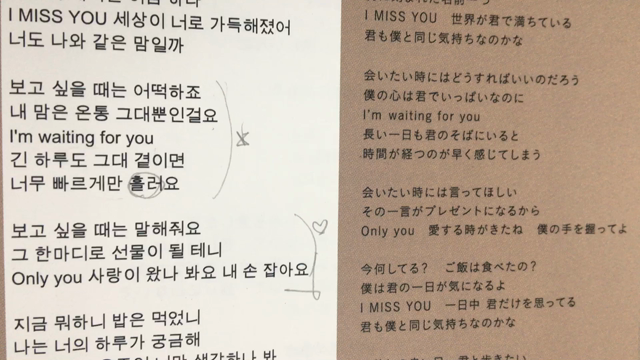 I MISS YOU 세상이 너로 가득해졌어
너도 나와 같은 맘일까
보고 싶을 때는 어떡하죠
내 맘은 온통 그대뿐인걸요
I'm waiting for you
긴 하루도 그대 곁이면
너무 빠르게만 흘러요
보고 싶을 때는 말해줘요
그 한마디로 선물이 될 테니
Only you 사랑이 왔나 봐요 내 손 잡아요
지금 뭐하니 밥은 먹었니
나는 너의 하루가 궁금해
I MISS YOU 世界が君で満ちている
君も僕と同じ気持ちなのかな
会いたい時にはどうすればいいのだろう
僕の心は君でいっぱいなのに
I'm waiting for you
長い一日も君のそばにいると
時間が経つのが早く感じてしまう
会いたい時には言ってほしい
その一言がプレゼントになるから
Only you 愛する時がきたね 僕の手を握ってよ
今何してる? ご飯は食べたの?
僕は君の一日が気になるよ
I MISS YOU 一日中 君だけを思ってる
君も僕と同じ気持ちなのかな